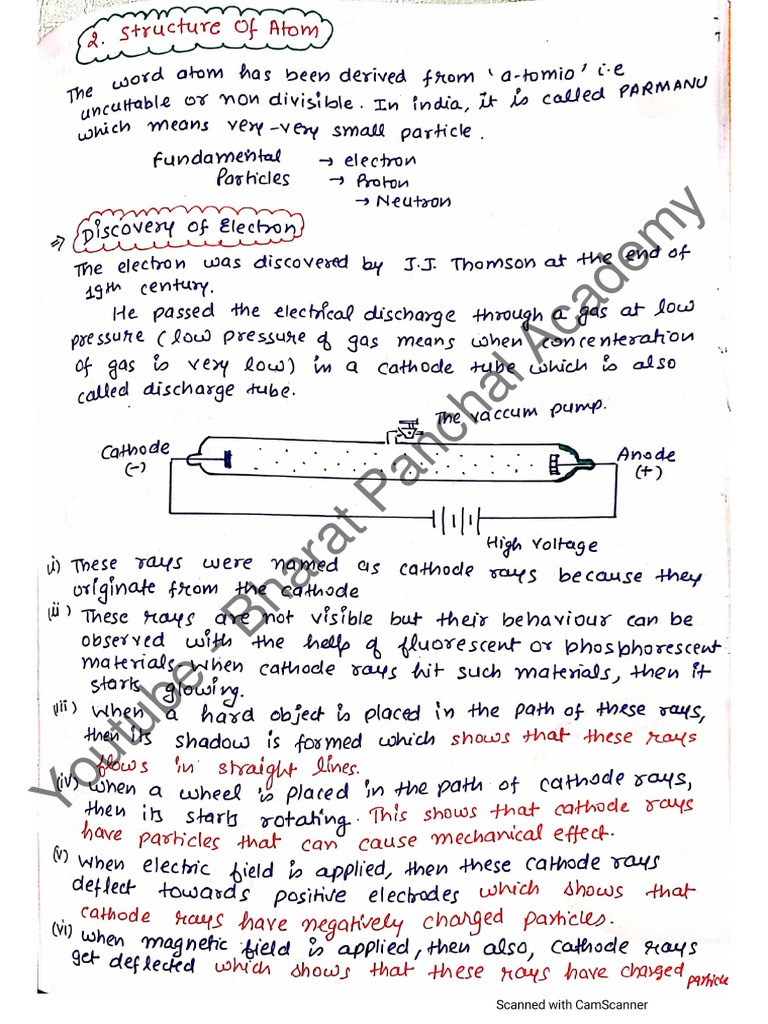 2. Structure Of Atom
The word atom has been derived from 'a-tomio' i.e
uncuttable or non divisible. In india, it is called PARMANU
which means very-very small particle.
Fundamental → electron
Particles → Proton
→ Neutron
⇒ Discovery of Electron
The electron was discovered by J.J. Thomson at the end of
19th century.
He passed the electrical discharge through a gas at low
pressure (low pressure of gas means when concenteration
of gas is very low) in a cathode tube which is also
called discharge tube.
The vaccum pump.
Cathode
(-)
Anode
(+)
High voltage
(i) These rays were named as cathode rays because they
originate from the cathode
(ii) These rays are not visible but their behaviour can be
observed with the help of fluorescent or phosphorescent
materials. When cathode rays hit such materials, then it
starts glowing.
(iii) When a hard object is placed in the path of these rays,
then its shadow is formed which shows that these rays
flows in straight lines.
(iv) When a wheel is placed in the path of cathode rays,
then its starts rotating. This shows that cathode rays
have particles that can cause mechanical effect.
(v) When electric field is applied, then these cathode rays
deflect towards positive electrodes which shows that
cathode rays have negatively charged particles.
(vi) When magnetic field is applied, then also, cathode rays
get deflected which shows that these rays have charged particle
Youtube - Bharat Panchal Academy
Scanned with CamScanner